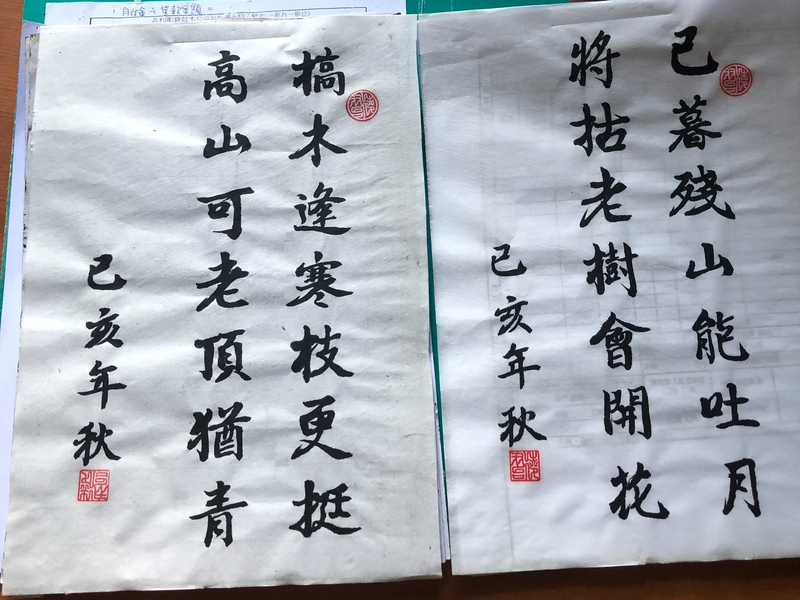 已暮殘山能吐月
將枯老樹會開花
己亥年秋
槁木逢寒枝更挺
高山可老頂猶青
己亥年秋